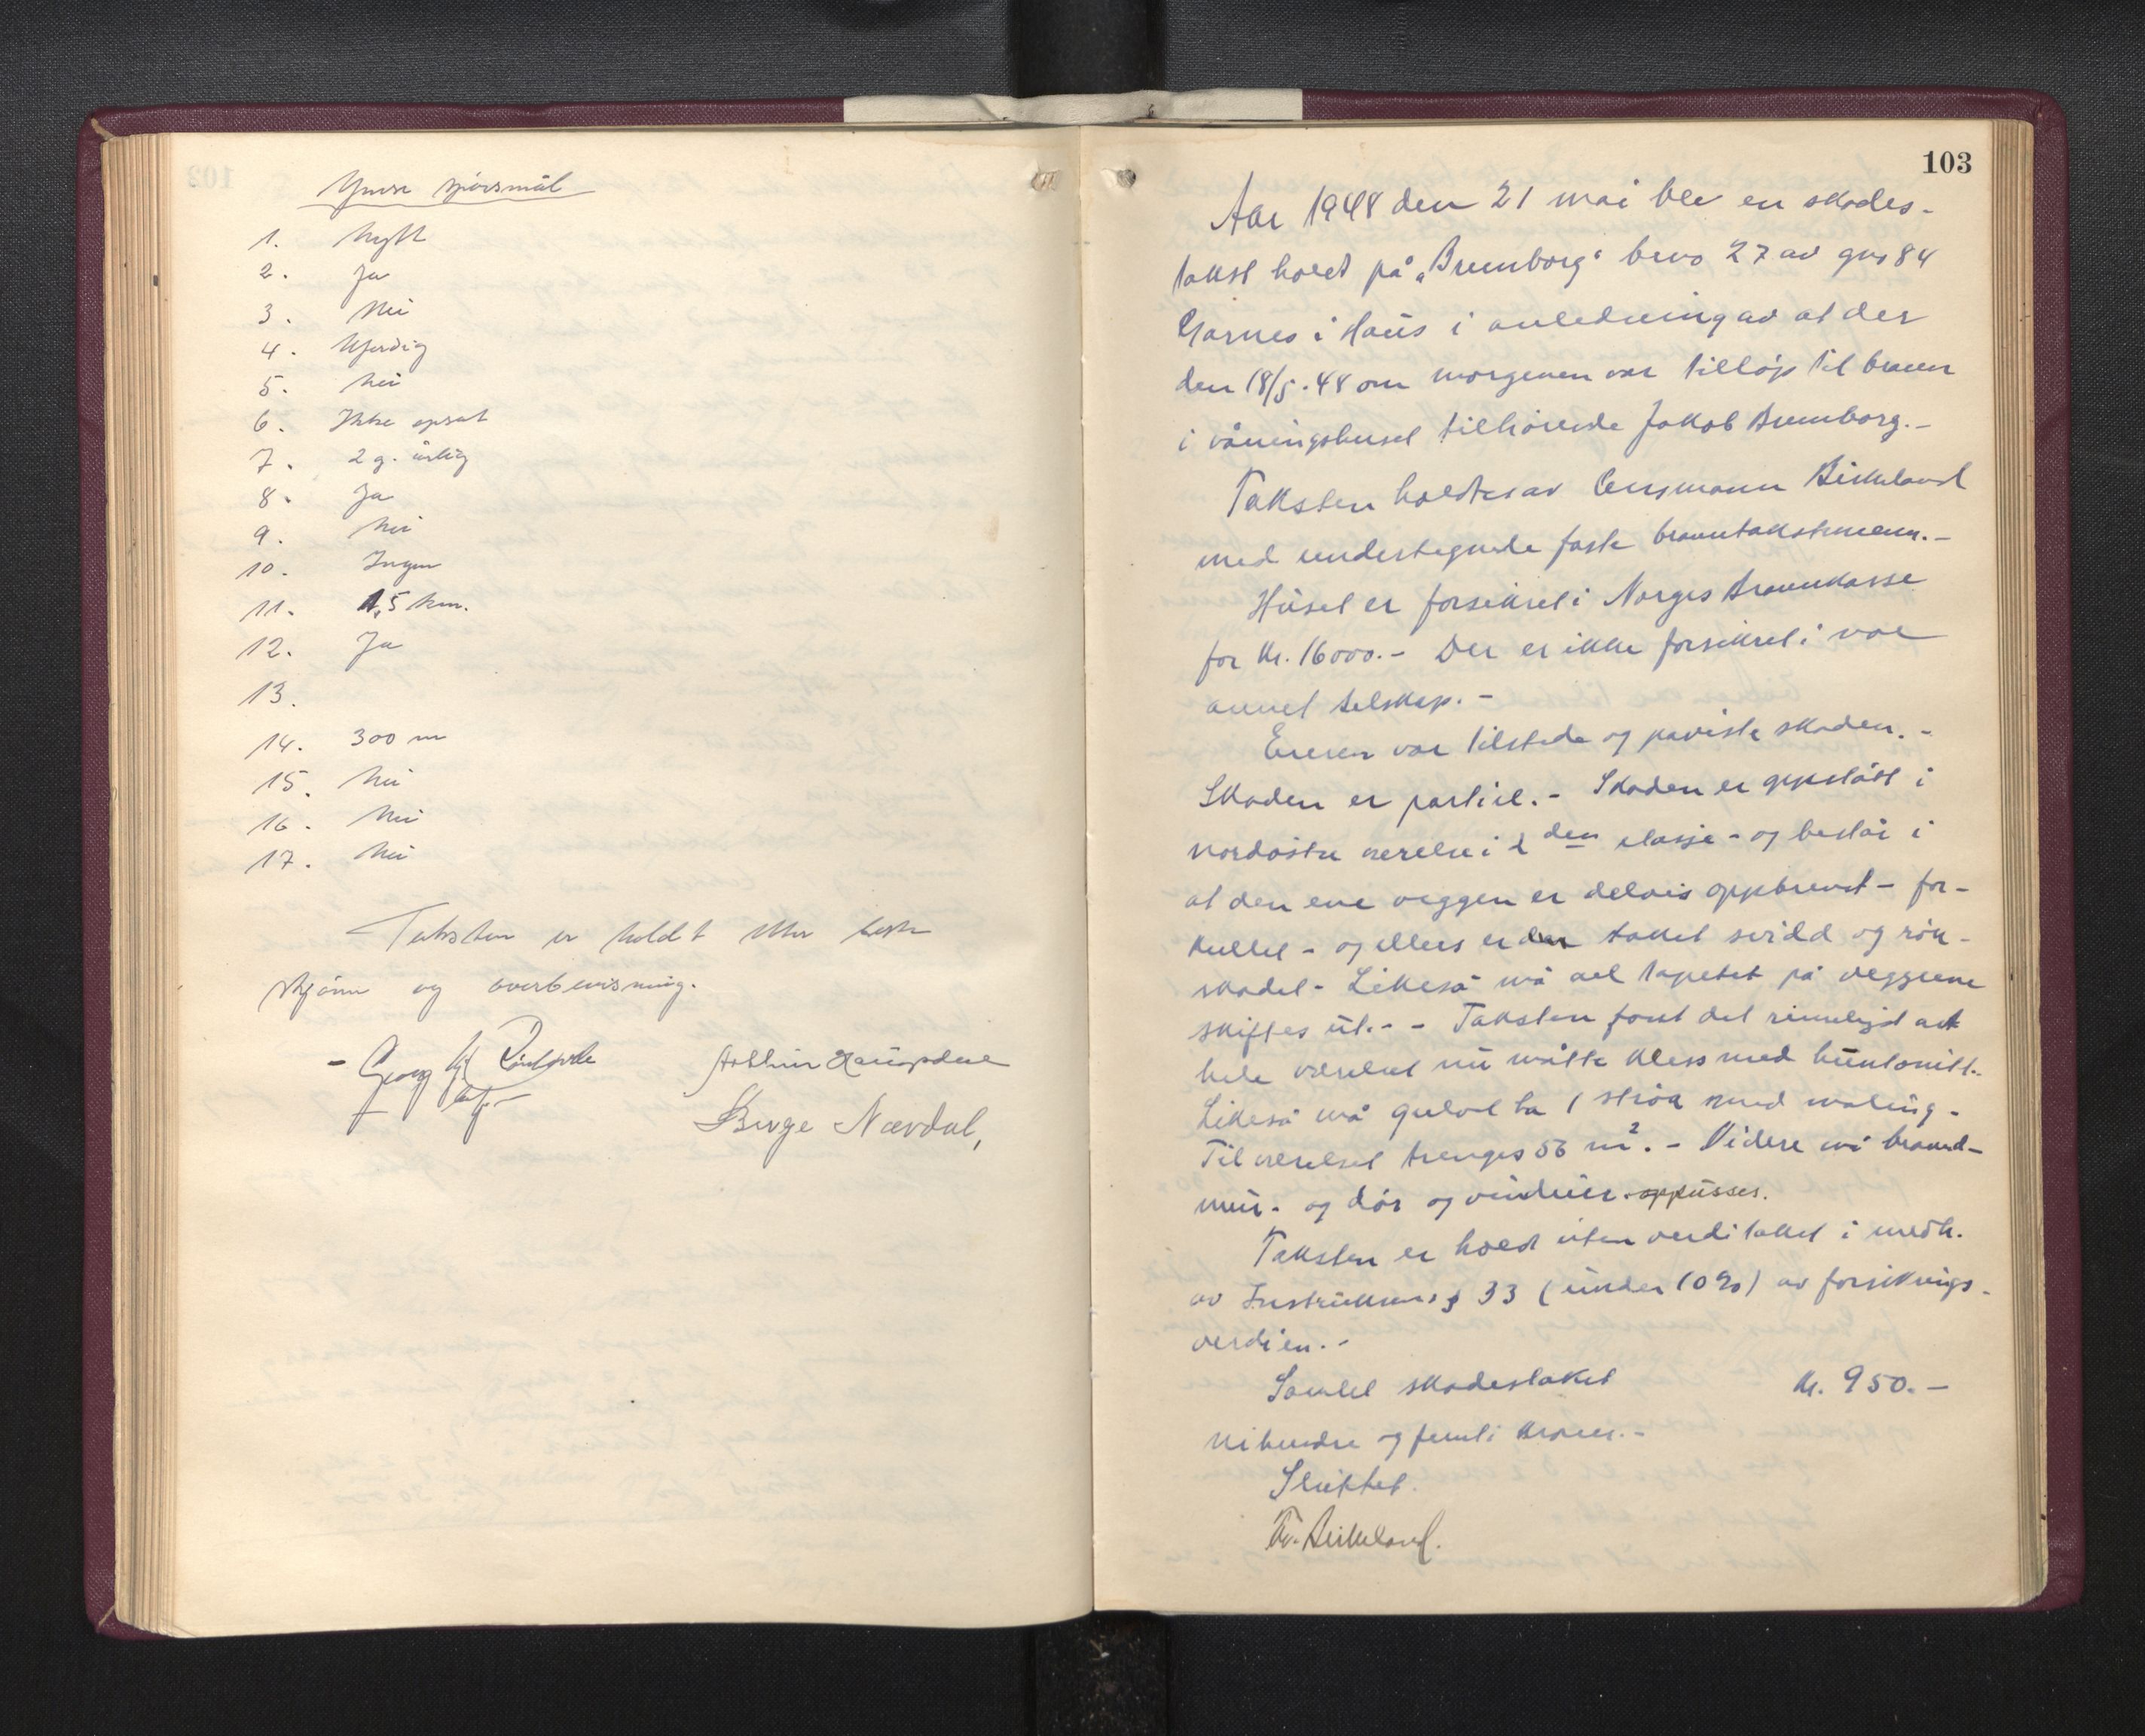 Ymse spörsmål
1. Nytt
2. Ja
3. Nei
4. Uferdig
5. Nei
6. Ikke opsat
7. 2 g. årlig
8. Ja
9. Nei
10. Ingen
11. 1,5 km.
12. Ja
13.
14. 300 m
15. Nei
16. Nei
17. Nei
Taksten er holdt etter beste
skjönn og overbevisning.
Georg
Birge Nævdal,
103
Aar 1948 den 21 mai blev en skades-
takst holdt på "Brumborg" brno 27 av gno 84
Garnes i Haus i anledning av at der
den 18/5.48 om morgenen var tilløp til brann
i våningshuset tilhörende Jakob Brumborg.-
Taksten holdtes av lensmann Birkeland
med undertegnede faste branntakstmenn.-
Huset er forsikret i Norges Brannkasse
for kr. 16000.- Der er ikke forsikret i noe
annet selskap.-
Eieren var tilstede og paviste skaden.-
Skaden er partiel.- Skaden er oppstått i
nordöstre værelse i 2 den etasje - og består i
at den ene veggen er delvis oppbrent - for-
kullet - og ellers er der taket svidd og rök-
skadet - Likeså må all tapetet på veggene
skiftes ut.- - Taksten fant det rimeligst at
hele værelset nu måtte kless med huntonitt.
Likeså må gulvet ha 1 strök med maling -
Til værelset trenges 56 m². - Videre må brand-
mur - og dör og vinduer oppusses.
Taksten er holdt uten verditakst i medh.
av Instruksens § 33 (under 10%) av forsikrings-
verdien.-
Samlet skadestakst kr. 950.-
nihundre og femti kroner.-
Sluttet.
Birkeland.